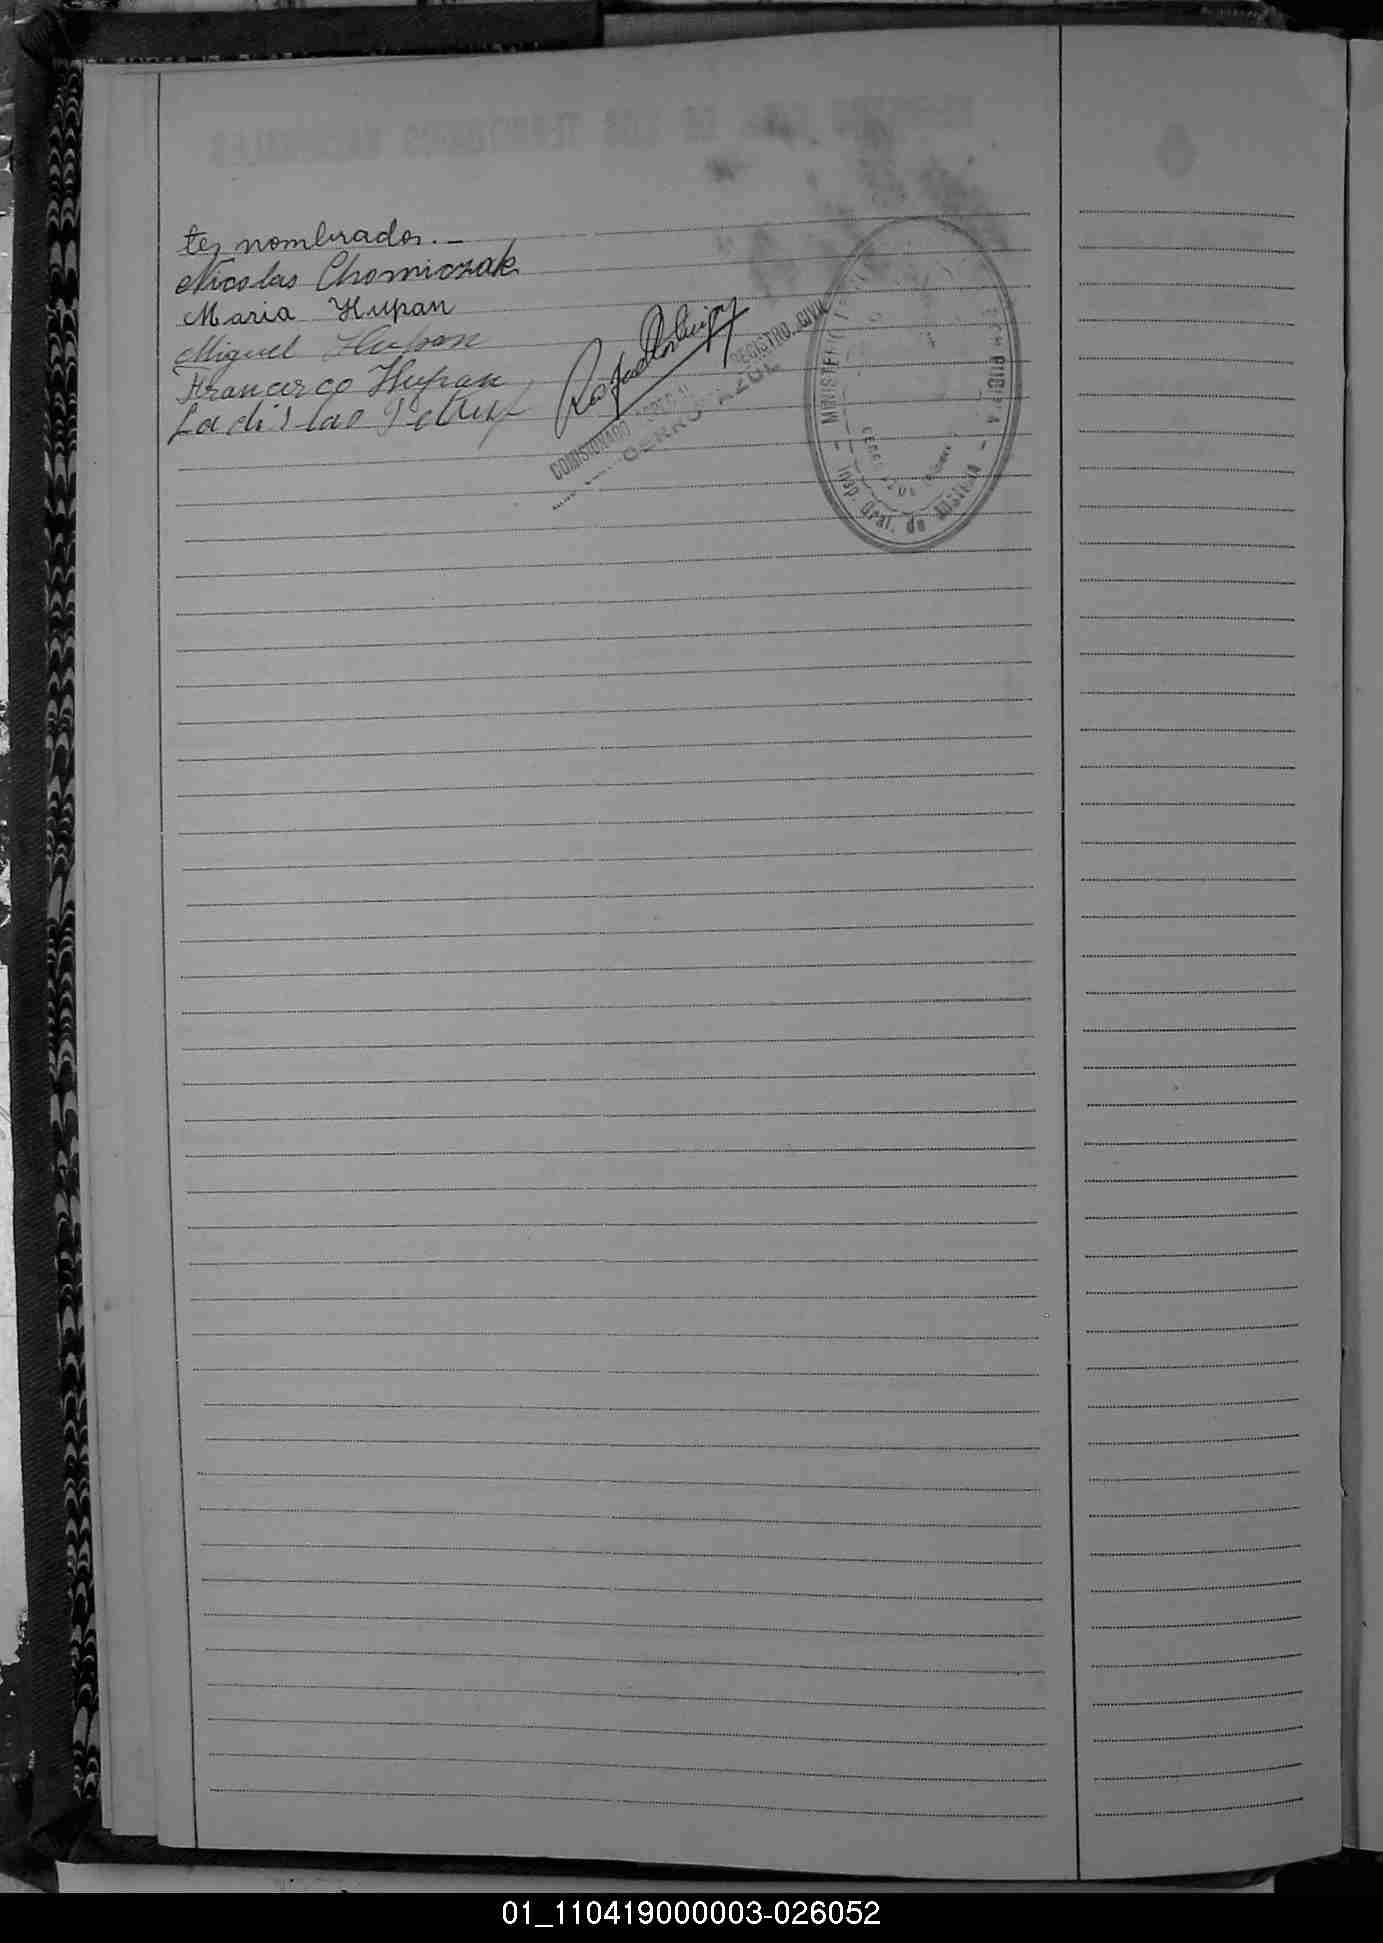 tes nombrados. -
Nicolas Chomiczak
Maria Hupan
Miguel Hupan
Francisco Hupan
Ladislao
COMISIONADO REGISTRO CIVIL
CERRO AZUL
MINISTERIO
Insp. Gral. de Justicia
01_110419000003-026052